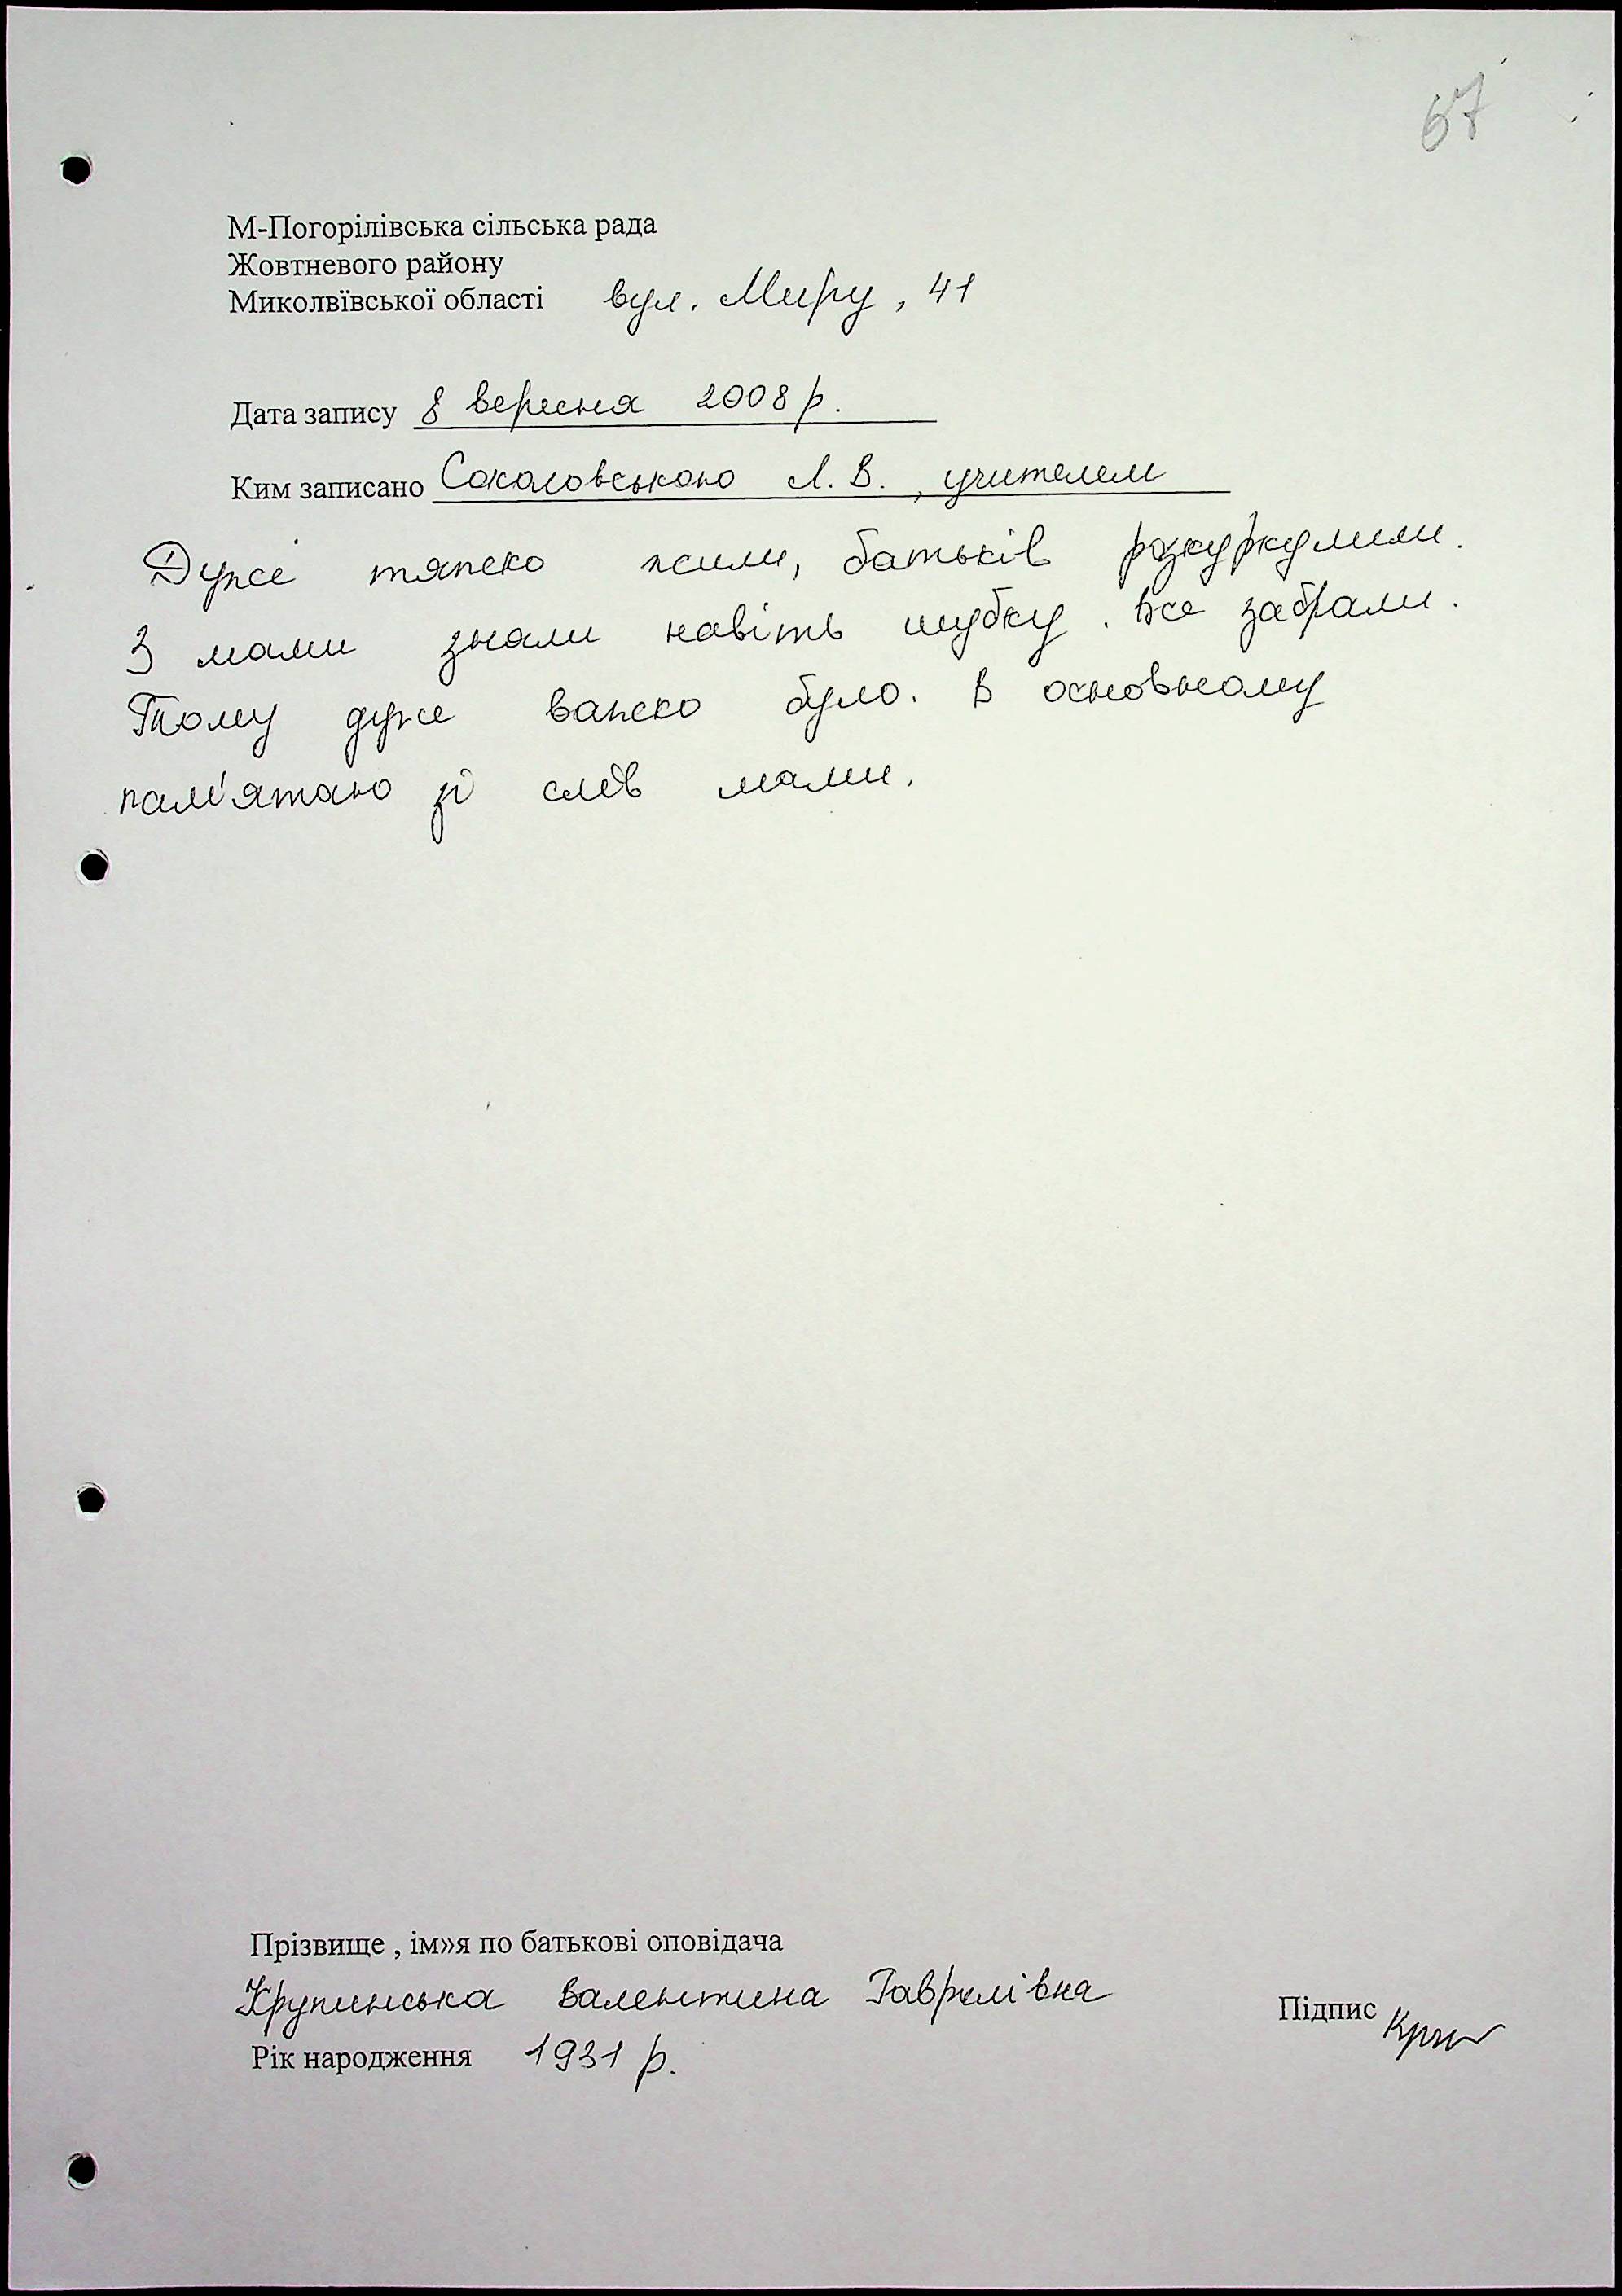 67
М-Погорілівська сільська рада
Жовтневого району
Миколвївської області вул. Миру, 41
Дата запису 8 вересня 2008 р.
Ким записано Соколовською Л. В., учителем
Дуже тяжко жили, батьків розкуркулили.
З мами зняли навіть шубку. Все забрали.
Тому дуже важко було. В основному
пам'ятаю зі слів мами.
Прізвище , ім»я по батькові оповідача
Крупинська Валентина Гаврилівна
Підпис
Рік народження 1931 р.